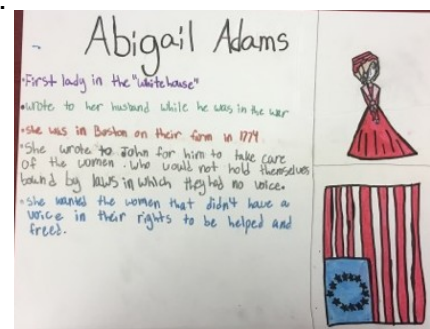 Abigail Adams
•First lady in the "white house"
•wrote to her husband while he was in the war
•she was in Boston on their farm in 1774
•She wrote to John for him to take care
of the women. Who would not hold themselves
bound by laws in which they had no voice.
•she wanted the women that didn't have a
voice in their rights to be helped and
freed.